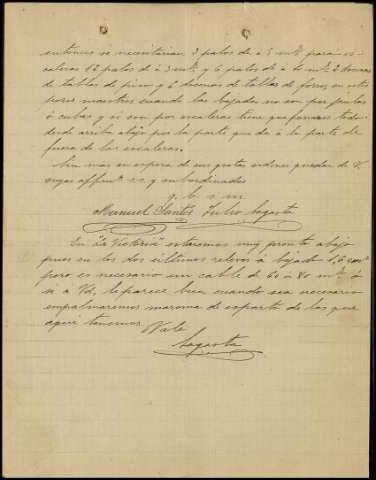 entonces se necesitarian 3 palos de á 5 mts. para es-
caleras 12 palos de á 3 mts. y 6 palos de á 4 mts. 2 docenas
de tablas de pino y 6 docenas de tablas de forro, en estos
pozos maestros cuando las bajadas no son por
á cubas y si son por escaleras tiene que forrarse todo
desde arriba abajo por la parte que da á la parte de
fuera de las escaleras.
Sin mas en espera de sus gratas ordenes quedan de V.
s.s. y subordinados
q. b. s. m
Manuel Santos Julio Sagasta
En "La Victoria" estaremos muy pronto abajo
pues en los dos últimos relevos á bajado 1,6
pero es necesario un cable de 60 á 80 mts. ó
si á Vd. le parece bien cuando sea necesario
empalmaremos maroma de esparto de las que
aqui tenemos.
Vale
Sagasta